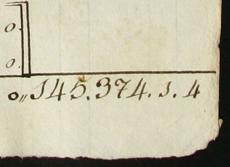 o.
o.
o„145.374.1.4